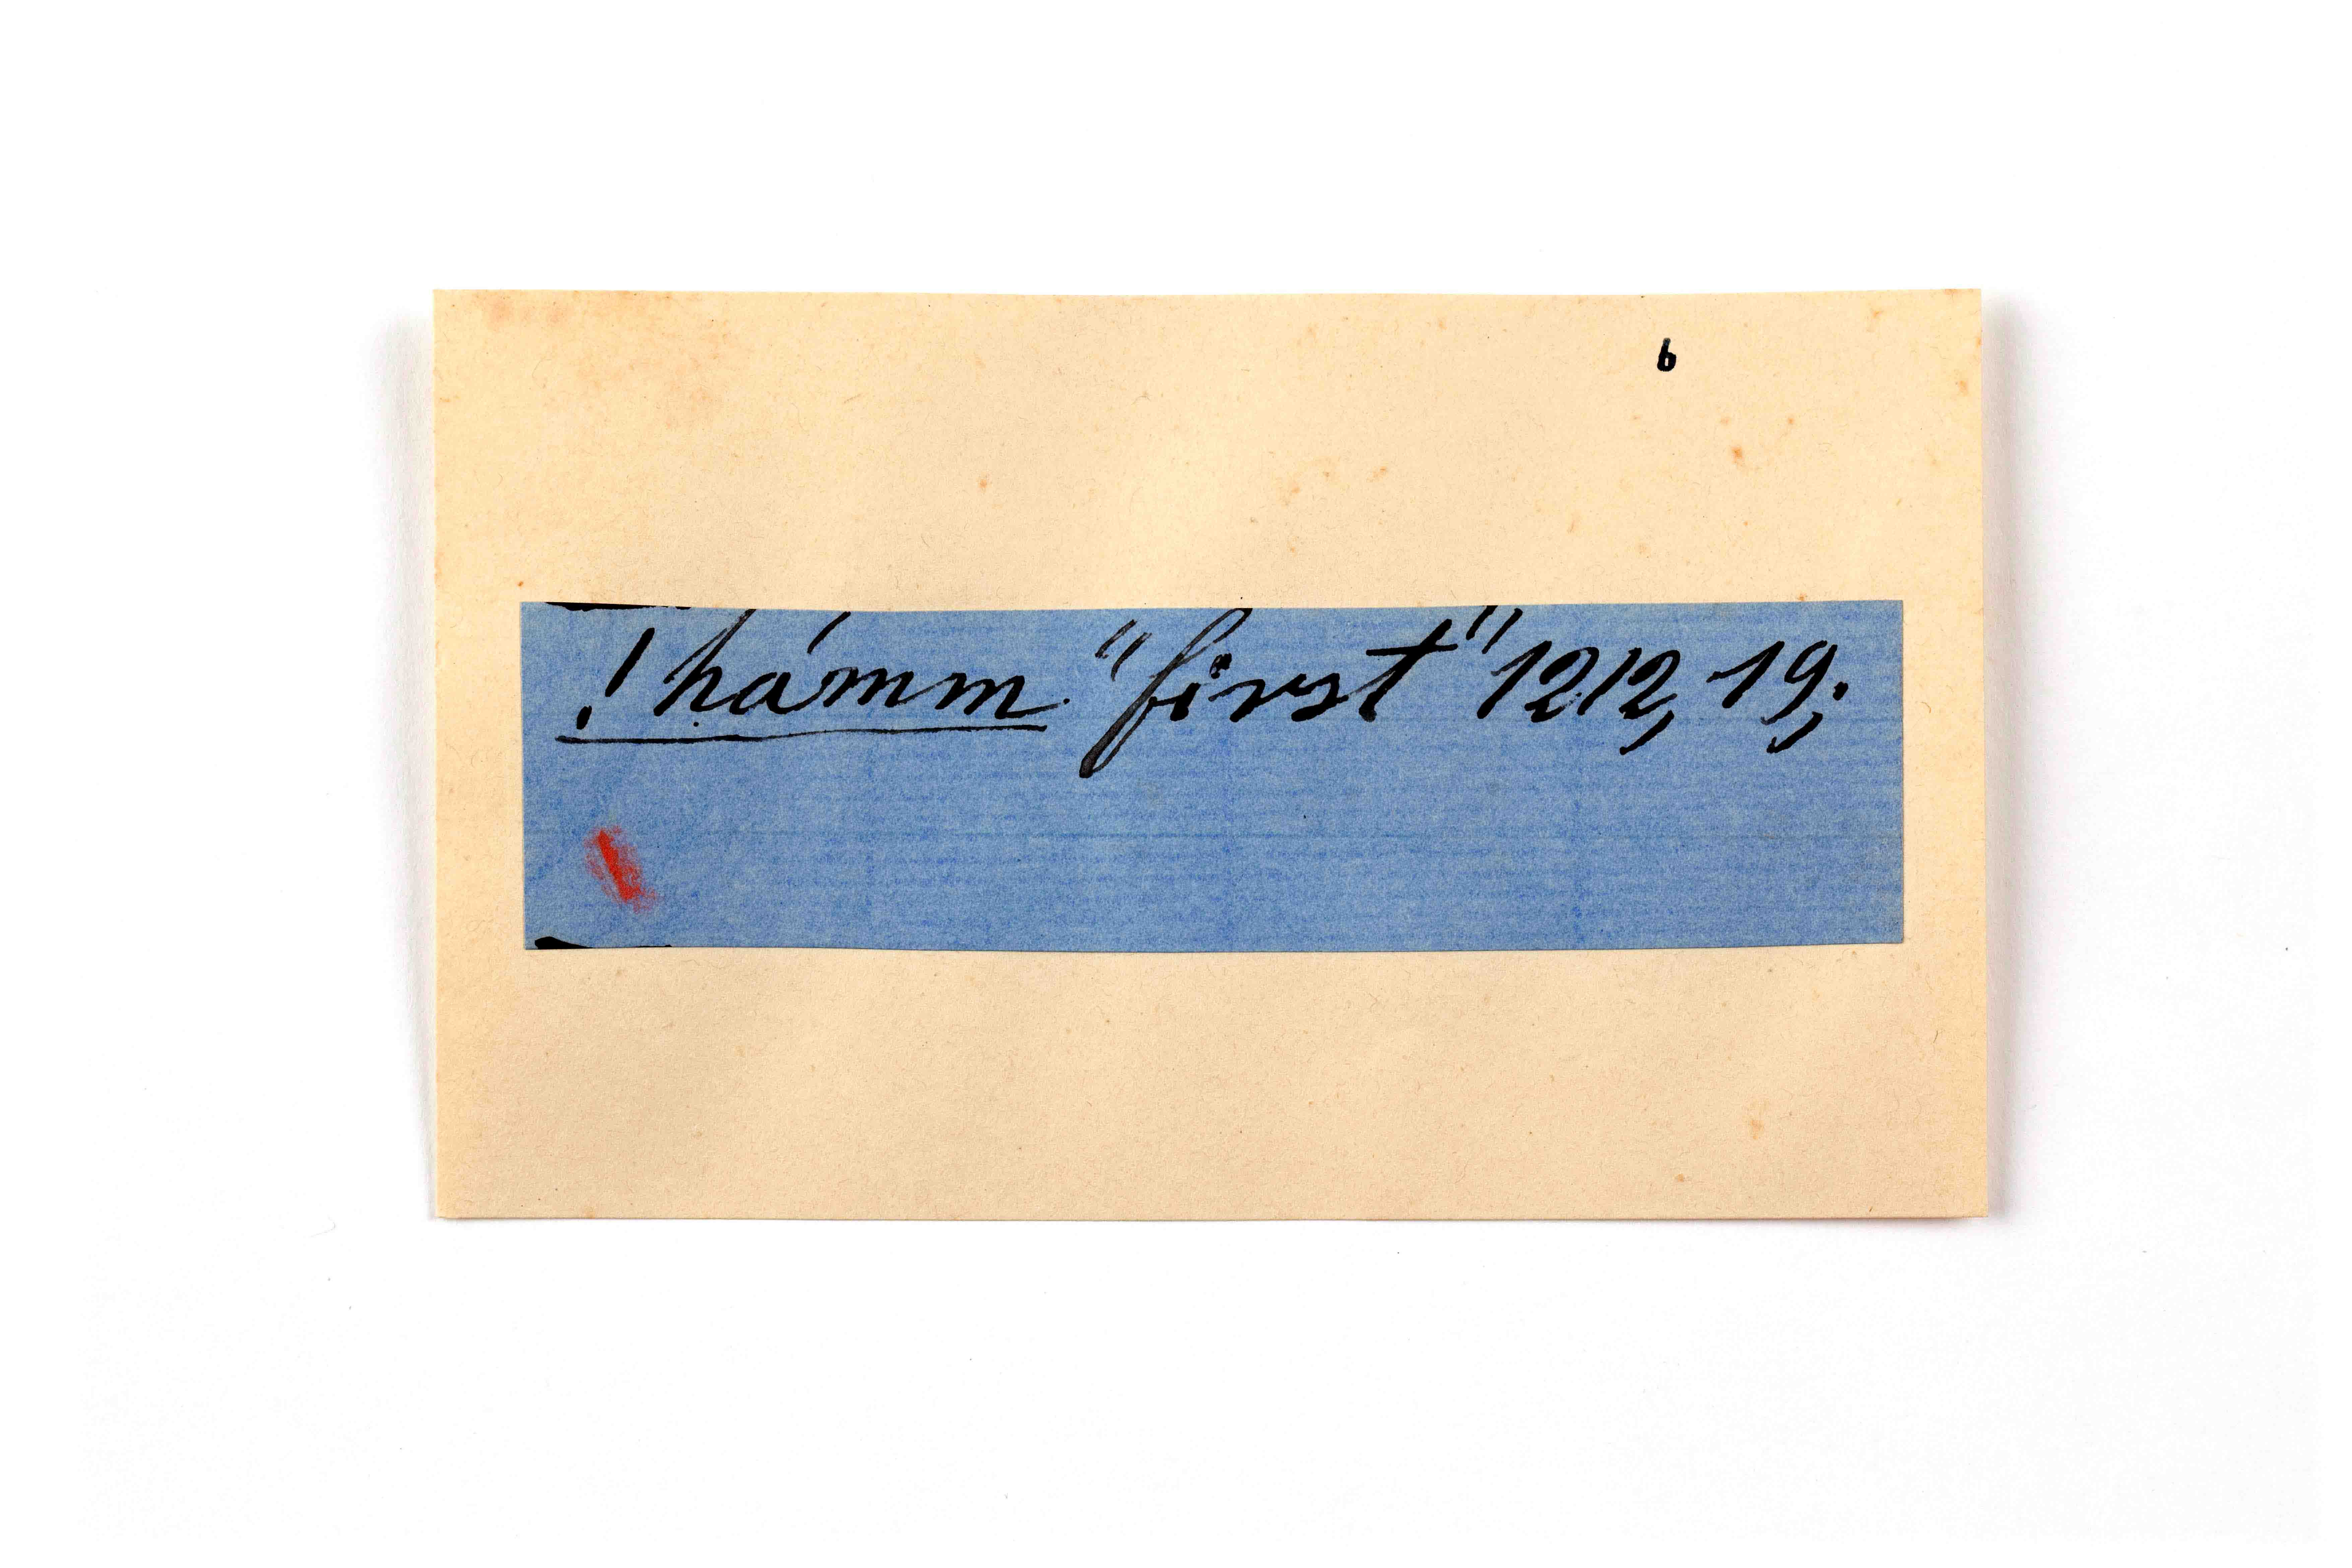 b
! hámm "first" 1212, 19;